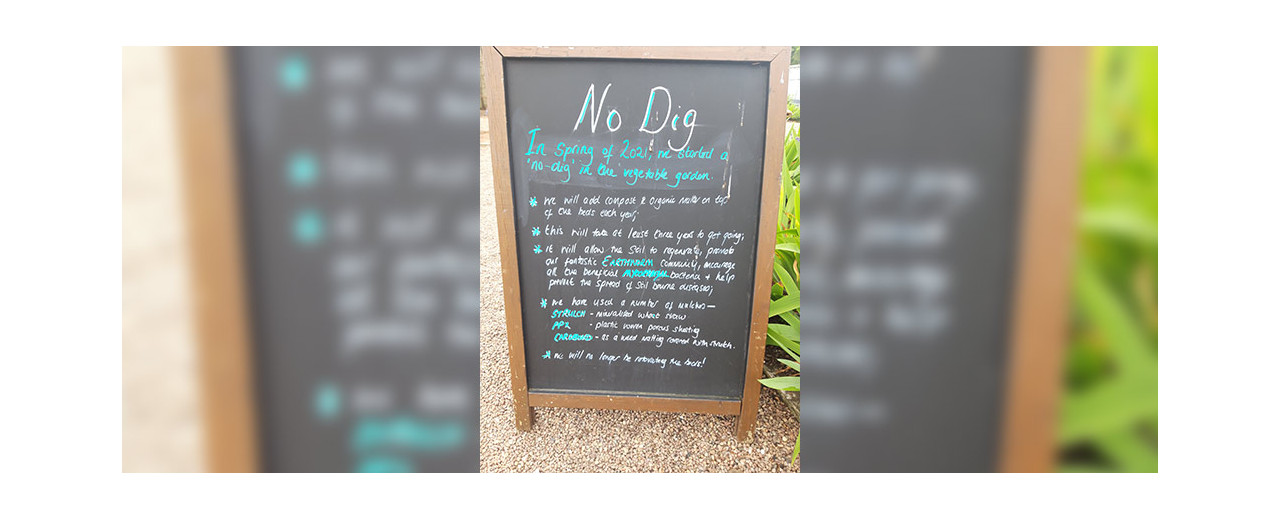 No Dig
In Spring of 2021, we started a
'no-dig' in the vegetable garden.
* we will add compost & organic matter on top
of the beds each year;
* this will take at least three years to get going;
* it will allow the soil to regenerate, provide
our fantastic EARTHWORM community, encourage
all the beneficial MYCORRHIZAL bacteria + help
prevent the spread of soil bourne diseases;
* we have used a number of mulches —
STRULCH - mineralised wheat straw
PPX - plastic woven porous sheeting
CARDBOARD - as a weed matting covered with strulch.
* we will no longer be rotovating the beds!